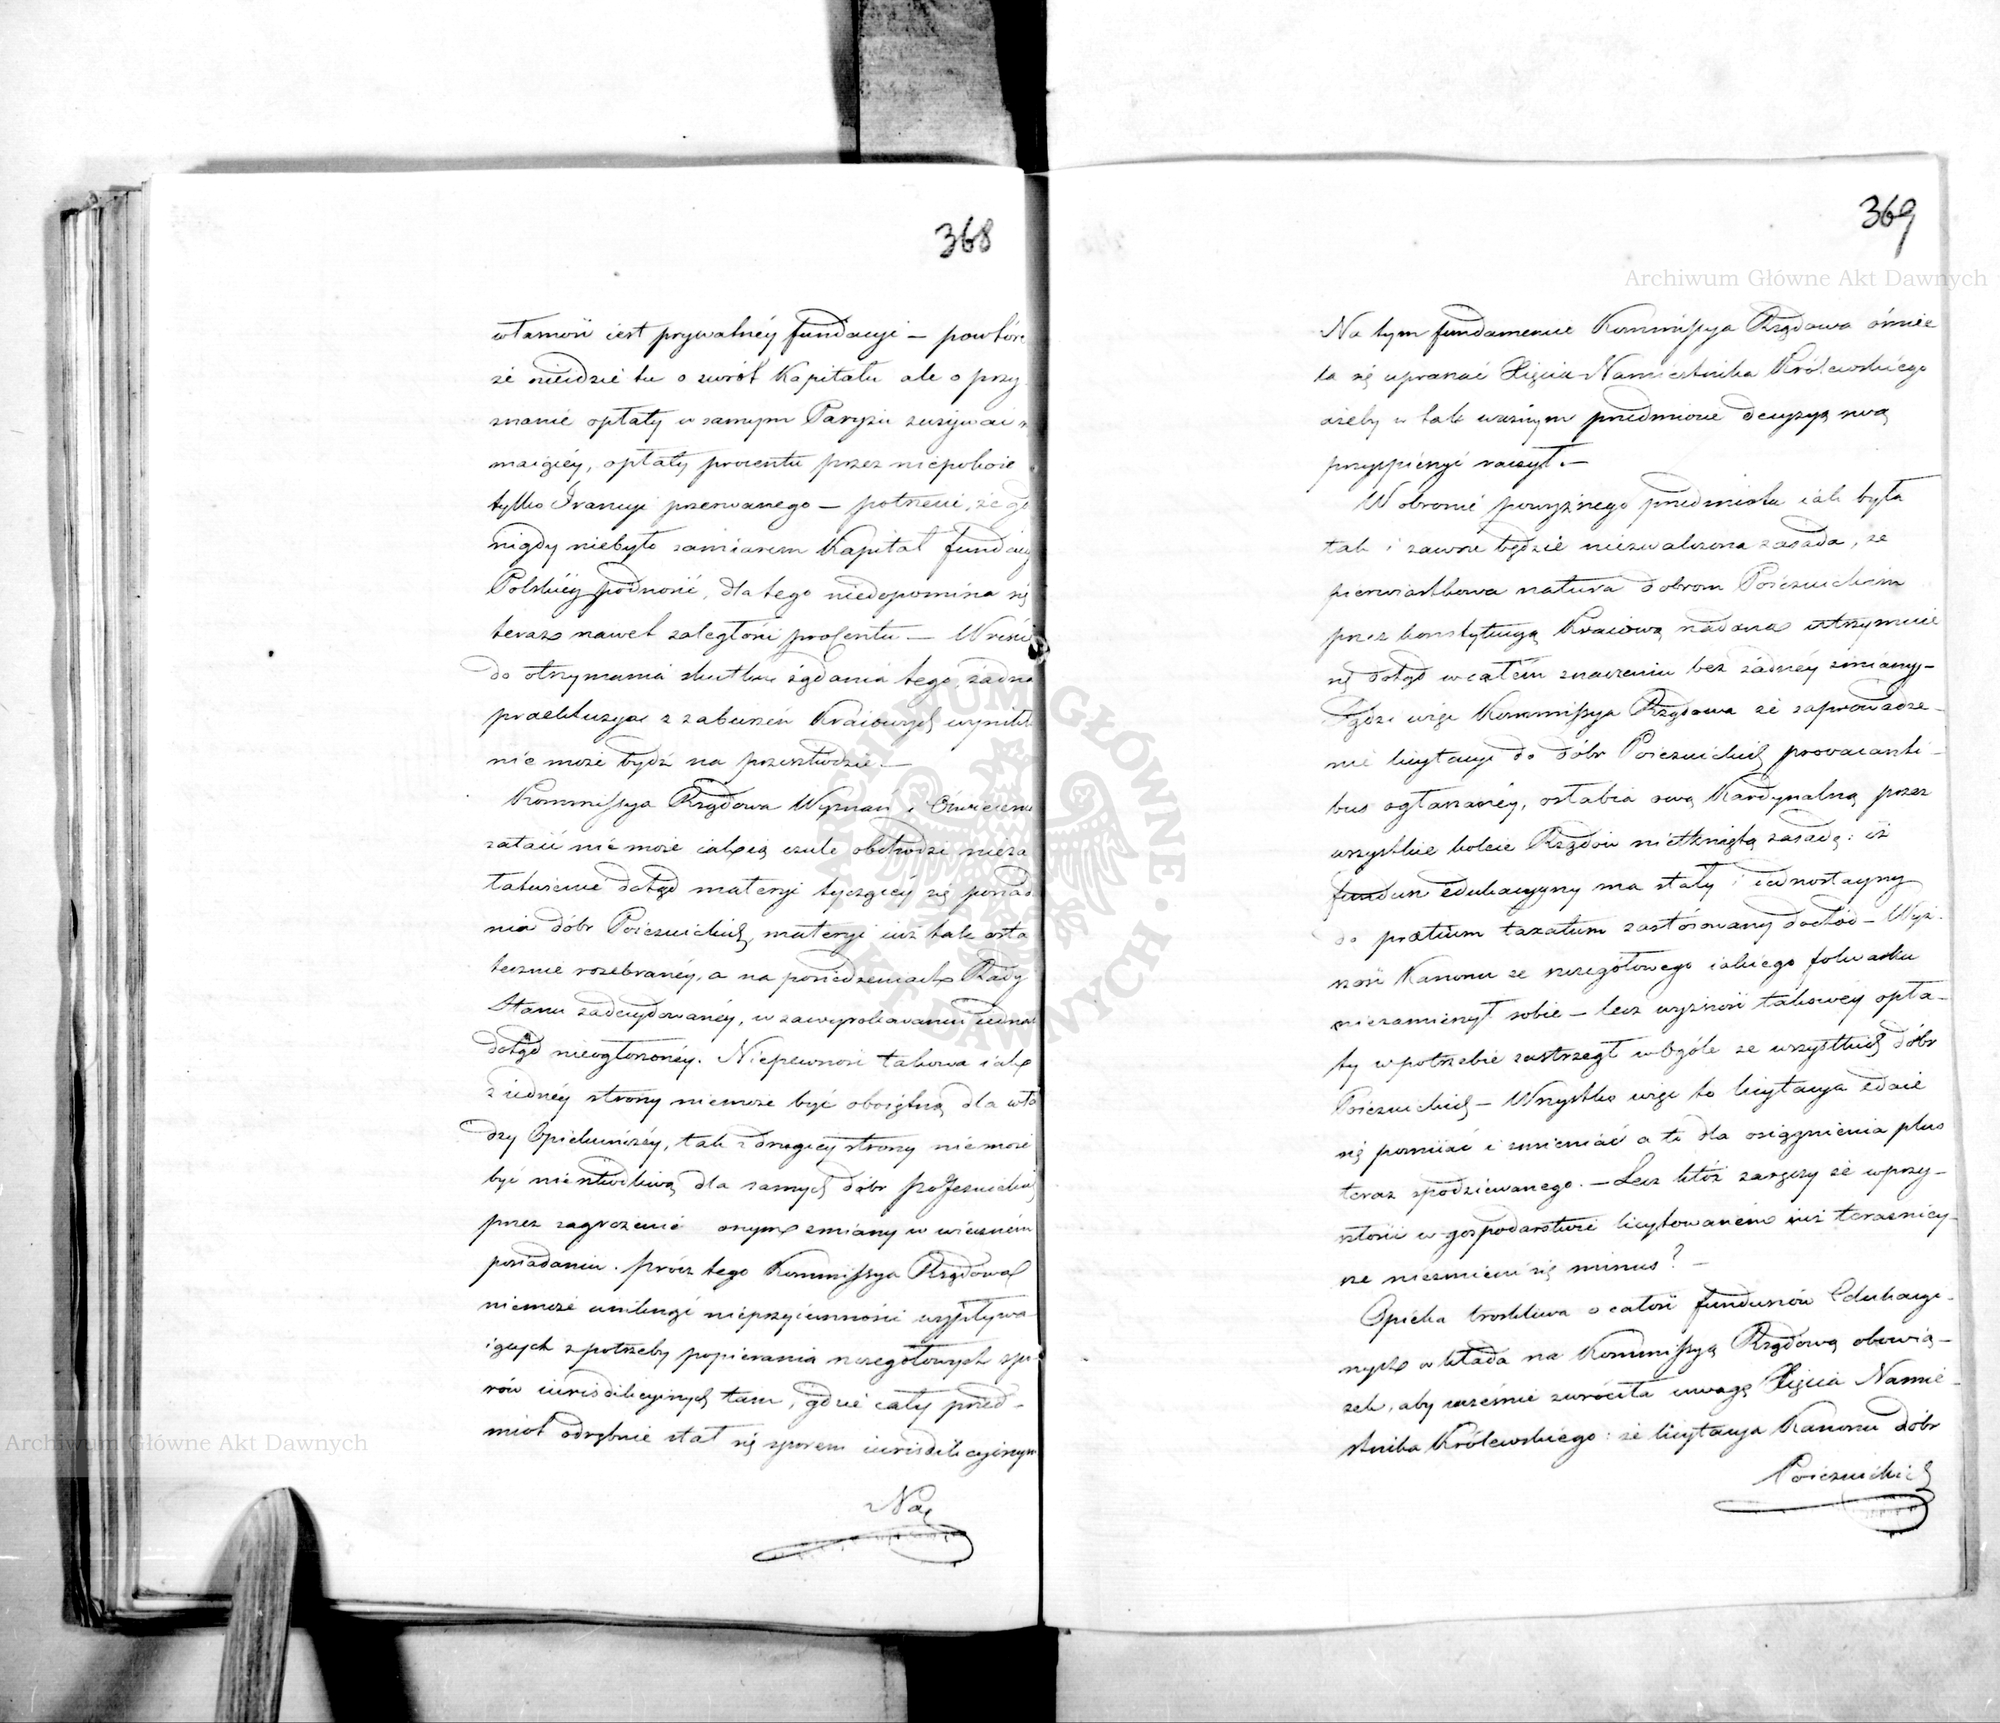 368
własność iest prywatnéy fundacyi – powtór
że nieidzie tu o zwrót Kapitału ale o przy
znanie opłaty w samym Paryżu zużywać
maiącéy, opłaty procentu przez niepokoie
tylko Francyi przerwanego – potrzecie, że gdy
nigdy niebyło zamiarem Kapitał fundacyi
Polskiéy podnosić, dla tego niedopomina się
teraz nawet zaległości procentu – Wreście
do otrzymania skutku żądania tego, żadna
prekluzya z zaburzeń Kraiowych wynikła
nie może bydź na przeszkodzie. –
Kommissya Rządowa Wyznań i Oświecenia
zataić nie może iak ią czule obchodzi nieza
łatwienie dotąd materyi tyczącéy się posiada
nia dóbr Poiezuickich, materyi iuż tak osta
tecznie rozebranéy, a na posiedzeniach Rady
Stanu zadecydowanéy, w zawyrokowaniu iednak
dotąd nieogłoszonéy. Niepewność takowa iak
z iednéy strony niemoże być oboiętną dla wła
dzy Opiekuńczéy, tak z drugiéy strony niemoże
być nieszkodliwą dla samych dóbr poJezuickich
przez zagrożenie onym zmiany w wieczném
posiadaniu. Prócz tego Kommissya Rządowa
niemoże uniknąć nieprzyiemności wypływa
iących z potrzeby popierania szczegółowych spo
rów iurisdikcyinych tam, gdzie cały przed-
miot odrębnie stał się sporem iurisdikcyinym
Na
Archiwum Główne Akt Dawnych
369
Archiwum Główne Akt Dawnych
Na tym fundamencie Kommissya Rządowa ośmie
la się upraszać Xięcia Namiestnika Królewskiego
ażeby w tak ważnym przedmiocie decyzyą swą
przyspieszyć raczył. –
W obronie powyższego przedmiotu iak była
tak i zawsze będzie niezwalczona zasada, że
pierwiastkowa natura dobrom Poiezuickim
przez konstytucyą Kraiową nadana utrzymuie
się dotąd w całém znaczeniu bez żadnéy zmiany –
Sądzi więc Kommissya Rządowa że zaprowadze-
nie licytacyi do dóbr Poiezuickich pro vacanti-
bus ogłaszanéy, osłabia ową Kardynalną przez
wszystkie koleie Rządów nietkniętą zasadę: iż
fundusz edukacyiny ma stały i iednostayny
do pretium taxatum zastósowany dochód – Wyż-
szość Kanonu ze szczegółowego iakiego folwarku
niezamierzył sobie – lecz wyższość takowéy opła-
ty w potrzebie zastrzegł wogóle ze wszystkich dóbr
Poiezuickich – Wszystko więc to licytacya zdaie
się pomiiać i zmieniać a to dla osiągnienia plus
teraz spodziewanego. – Lecz któż zaręczy że wprzy-
szłości w gospodarstwie licytowaném iuż teraźniey-
sze niezmieni się minus? –
Opieka troskliwa o całość funduszów Edukacyi-
nych wkłada na Kommissyą Rządową obowią-
zek, aby wcześnie zwróciła uwagę Xięcia Namie-
stnika Królewskiego: że licytacya Kanonu dóbr
Poiezuickich
ARCHIWUM GŁÓWNE AKT DAWNYCH